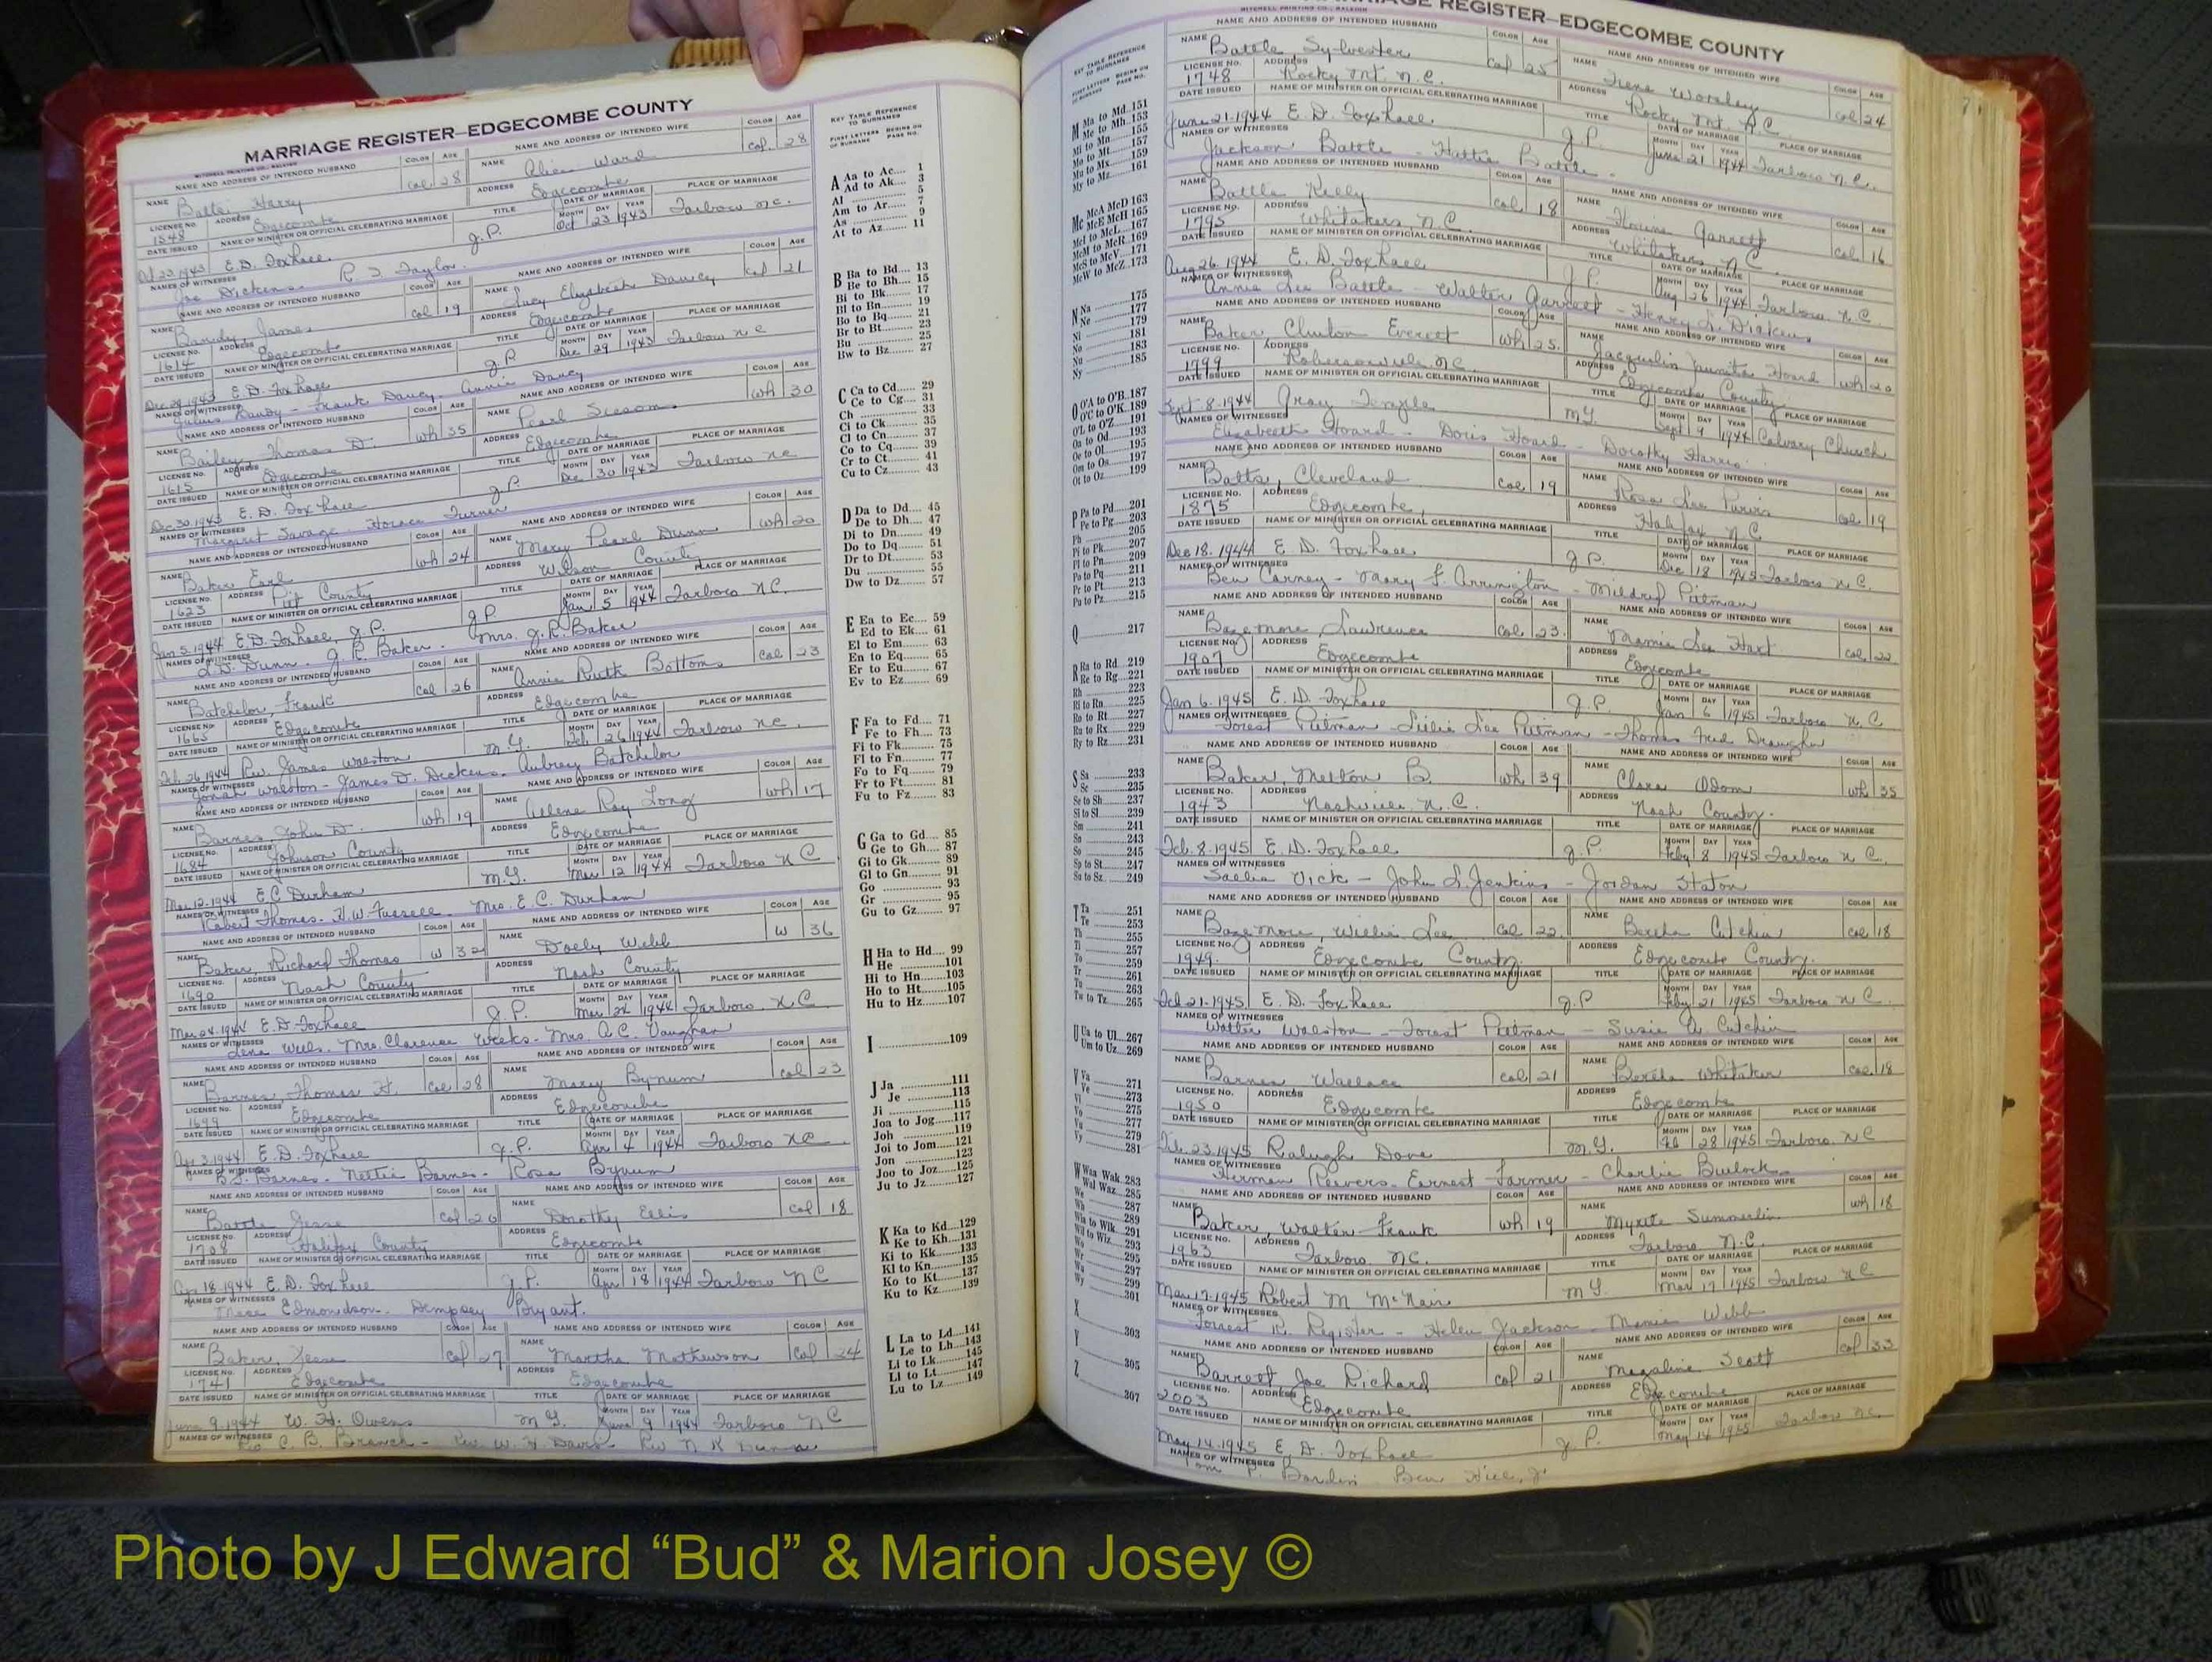 MARRIAGE REGISTER—EDGECOMBE COUNTY
MITCHELL PRINTING CO., RALEIGH
NAME AND ADDRESS OF INTENDED HUSBAND COLOR AGE NAME AND ADDRESS OF INTENDED WIFE COLOR AGE
NAME Batts, Harry col 28 NAME Alice Ward col. 28
LICENSE NO. 1548 ADDRESS Edgecombe ADDRESS Edgecombe
DATE ISSUED NAME OF MINISTER OR OFFICIAL CELEBRATING MARRIAGE TITLE DATE OF MARRIAGE MONTH DAY YEAR PLACE OF MARRIAGE
Oct 23, 1943 E. D. Foxhall J. P. Oct 23 1943 Tarboro N.C.
NAMES OF WITNESSES Joe Dickens R. S. Taylor
NAME Bandy, James col 19 NAME Lucy Elizabeth Dancy col 21
LICENSE NO. 1614 ADDRESS Edgecombe ADDRESS Edgecombe
Dec 29, 1943 E. D. Foxhall J. P. Dec 29 1943 Tarboro N C
NAMES OF WITNESSES Julius Bandy - Frank Dancy. Annie Dancy
NAME Bailey, Thomas D. wh 35 NAME Pearl Sessoms wh 30
LICENSE NO. 1615 ADDRESS Edgecombe ADDRESS Edgecombe
Dec 30, 1943 E. D. Foxhall J. P. Dec 30 1943 Tarboro N.C.
NAMES OF WITNESSES Margaret Savage - Horace Turner
NAME Baker, Earl wh 24 NAME Mary Pearl Dunn wh 20
LICENSE NO. 1623 ADDRESS Pitt County ADDRESS Wilson County
Jan 5, 1944 E. D. Foxhall, J. P. J. P. Jan 5 1944 Tarboro N.C.
NAMES OF WITNESSES L. D. Dunn. J. R. Baker. Mrs. J. R. Baker
NAME Batchelor, Frank col 26 NAME Annie Ruth Bottoms col 23
LICENSE NO. 1665 ADDRESS Edgecombe ADDRESS Edgecombe
Feb. 26, 1944 Rev. James Walston M. G. Feb 26 1944 Tarboro N.C.
NAMES OF WITNESSES Jonah Walston - James D. Dickens. Aubrey Batchelor
NAME Barnes, John D. wh 19 NAME Arlene Ray Long wh 17
LICENSE NO. 1684 ADDRESS Johnson County ADDRESS Edgecombe
Mar 12, 1944 E C Durham M. G. Mar 12 1944 Tarboro N C
NAMES OF WITNESSES Robert Thomas. H. W. Fussell. Mrs. E. C. Durham
NAME Baker, Richard Thomas w 32 NAME Dolly Webb w 36
LICENSE NO. 1690 ADDRESS Nash County ADDRESS Nash County
Mar 24, 1944 E. D. Foxhall J. P. Mar 24 1944 Tarboro N.C.
NAMES OF WITNESSES Lena Wells. Mrs. Clarence Weeks. Mrs. A. C. Vaughan
NAME Barnes, Thomas H. col 28 NAME Mary Bynum col 23
LICENSE NO. 1699 ADDRESS Edgecombe ADDRESS Edgecombe
Apr 3, 1944 E. D. Foxhall J. P. Apr 4 1944 Tarboro N C
NAMES OF WITNESSES B. S. Barnes. Nettie Barnes. Rosa Bynum
NAME Battle Jesse col 26 NAME Dorothy Ellis col 18
LICENSE NO. 1708 ADDRESS Halifax County ADDRESS Edgecombe
Apr 18, 1944 E. D. Foxhall J. P. Apr 18 1944 Tarboro N C
NAMES OF WITNESSES Edmondson. Dempsey Bryant.
NAME Baker, Jesse col 27 NAME Martha Mathewson col 24
LICENSE NO. 1741 ADDRESS Edgecombe ADDRESS Edgecombe
June 9, 1944 W. H. Owens M G. June 9 1944 Tarboro N C
NAMES OF WITNESSES Rev C. B. Branch - Rev. W. H. Davis Rev N K Dunn
KEY TABLE REFERENCE TO SURNAMES
FIRST LETTERS OF SURNAME BEGINS ON PAGE NO.
A Aa to Ac.... 1
Ad to Ak.... 3
Al .......... 5
Am to Ar.... 7
As .......... 9
At to Az.... 11
B Ba to Bd.... 13
Be to Bh.... 15
Bi to Bk.... 17
Bl to Bn.... 19
Bo to Bq.... 21
Br to Bt.... 23
Bu .......... 25
Bw to Bz.... 27
C Ca to Cd.... 29
Ce to Cg.... 31
Ch .......... 33
Ci to Ck.... 35
Cl to Cn.... 37
Co to Cq.... 39
Cr to Ct.... 41
Cu to Cz.... 43
D Da to Dd.... 45
De to Dh.... 47
Di to Dn.... 49
Do to Dq.... 51
Dr to Dt.... 53
Du .......... 55
Dw to Dz.... 57
E Ea to Ec.... 59
Ed to Ek.... 61
El to Em.... 63
En to Eq.... 65
Er to Eu.... 67
Ev to Ez.... 69
F Fa to Fd.... 71
Fe to Fh.... 73
Fi to Fk.... 75
Fl to Fn.... 77
Fo to Fq.... 79
Fr to Ft.... 81
Fu to Fz.... 83
G Ga to Gd.... 85
Ge to Gh.... 87
Gi to Gk.... 89
Gl to Gn.... 91
Go .......... 93
Gr .......... 95
Gu to Gz.... 97
H Ha to Hd.... 99
He ..........101
Hi to Hn....103
Ho to Ht....105
Hu to Hz....107
I ..........109
J Ja ..........111
Je ..........113
Ji ..........115
Joa to Jog....117
Joh ..........119
Joi to Jom....121
Jon ..........123
Joo to Joz....125
Ju to Jz....127
K Ka to Kd...129
Ke to Kh...131
Ki to Kk...133
Kl to Kn...135
Ko to Kt...137
Ku to Kz...139
L La to Ld...141
Le to Lh...143
Li to Lk...145
Ll to Lt...147
Lu to Lz...149
MARRIAGE REGISTER—EDGECOMBE COUNTY
MITCHELL PRINTING CO., RALEIGH
NAME AND ADDRESS OF INTENDED HUSBAND COLOR AGE NAME AND ADDRESS OF INTENDED WIFE COLOR AGE
NAME Battle, Sylvester col 25 NAME Irene Worsley col 24
LICENSE NO. 1748 ADDRESS Rocky Mt. N.C. ADDRESS Rocky Mt. N.C.
June 21, 1944 E. D. Foxhall J. P. June 21 1944 Tarboro N.C.
NAMES OF WITNESSES Jackson Battle - Hattie Battle.
NAME Battle Kelly col 18 NAME Garrett col 16
LICENSE NO. 1795 ADDRESS Whitakers, N.C. ADDRESS Whitakers N C.
Aug 26, 1944 E. D. Foxhall J. P. Aug 26 1944 Tarboro N.C.
NAMES OF WITNESSES Annie Lee Battle - Walter Garrett - Henry L. Dickens
NAME Baker Clinton Everett wh 25 NAME Jacquelin Juanita Hoard wh 20
LICENSE NO. 1799 ADDRESS Robersonville N.C. ADDRESS Edgecombe County
Sept 8, 1944 Gray Temple M G. Sept 9 1944 Calvary Church
NAMES OF WITNESSES Elizabeth Hoard - Doris Hoard. Dorothy Harris
NAME Batts, Cleveland col 19 NAME Rosa Lee Purvis col 19
LICENSE NO. 1875 ADDRESS Edgecombe, ADDRESS Halifax N C
Dec 18. 1944 E. D. Foxhall J. P. Dec 18 1945 Tarboro N.C.
NAMES OF WITNESSES Ben Carney - Mary F. Arrington - Mildred Pittman
NAME Bazemore, Lawrence col 23. NAME Mamie Lee Hart col 22
LICENSE NO. 1907 ADDRESS Edgecombe ADDRESS Edgecombe
Jan 6. 1945 E. D. Foxhall J. P. Jan 6 1945 Tarboro N.C
NAMES OF WITNESSES Forest Pittman - Lillie Lee Pittman - Thomas Fred Draughn
NAME Baker, Melton B. wh 39 NAME Clara Odom wh 35
LICENSE NO. 1943 ADDRESS Nashville N.C. ADDRESS Nash County.
Feb. 8, 1945 E. D. Foxhall J. P. Feby 8 1945 Tarboro N C.
NAMES OF WITNESSES Sallie Vick - John L. Jenkins - Jordan Staton
NAME Bazemore, Willie Lee col 22 NAME Bertha Cutchin col 18
LICENSE NO. 1949. ADDRESS Edgecombe County. ADDRESS Edgecombe County.
Feb 21, 1945 E. D. Foxhall J. P Feby 21 1945 Tarboro N C.
NAMES OF WITNESSES Walter Walston - Forest Pittman - Susie A. Cutchin
NAME Barnes Wallace col 21 NAME Bertha Whitaker col 18
LICENSE NO. 1950 ADDRESS Edgecombe ADDRESS Edgecombe
Feb. 23, 1945 Raleigh Dove M. G. Feb 28 1945 Tarboro N C
NAMES OF WITNESSES Herman Reevers. Earnest Farmer - Charlie Bullock
NAME Baker, Walter Frank wh 19 NAME Myrtle Summerlin wh 18
LICENSE NO. 1963 ADDRESS Tarboro N.C. ADDRESS Tarboro N.C.
Mar 17, 1945 Robert M McNair M G. Mar 17 1945 Tarboro N C
NAMES OF WITNESSES Forrest R. Register - Helen Jackson - Mamie Webb
NAME Barrett Joe Richard col 21 NAME Magaline Scott col 33
LICENSE NO. 2003 ADDRESS Edgecombe ADDRESS Edgecombe
May 14, 1945 E. D. Foxhall J. P. May 14 1945 Tarboro N.C.
NAMES OF WITNESSES Tom P. Bardin Ben Hill, Jr
KEY TABLE REFERENCE TO SURNAMES
M Ma to Md..151
Me to Mh..153
Mi to Mn...155
Mo to Mt...157
Mu to Mx...159
My to Mz...161
Mc McA McD 163
McE McH 165
McI to McL..167
McM to McR..169
McS to McV..171
McW to McZ..173
N Na ......175
Ne ......177
Ni ......179
No ......183
Ny ......185
O O'A to O'B.187
O'C to O'K.189
O'L to O'Z.191
Oa to Od...193
Oe to Ol...195
Om to Os...197
Ot to Oz...199
P Pa to Pd...201
Pe to Pg...203
Ph ......205
Pi to Pk...207
Pl to Pn...209
Po to Pq...211
Pr to Pt...213
Pu to Pz...215
Q ......217
R Ra to Rd..219
Re to Rg...221
Rh ......223
Ri to Rn...225
Ro to Rt...227
Ru to Rx...229
Ry to Rz...231
S Sa ......233
Sc ......235
Se to Sh...237
Si to Sl...239
Sm ......241
Sn ......243
So ......245
Sp to St...247
Su to Sz...249
T Ta ......251
Te ......253
Th ......255
Ti ......257
To ......259
Tr ......261
Tu ......263
Tw to Tz...265
U Ua to Ul...267
Um to Uz..269
V Va ......271
Ve ......273
Vi ......275
Vo ......277
Vu ......279
Vy ......281
W Waa Wak.283
Wal Waz...285
We ......287
Wh ......289
Wia to Wik..291
Wil to Wiz..293
Wo ......295
Wr ......297
Wu ......299
Wy ......301
X ......303
Y ......305
Z ......307
Photo by J Edward “Bud” & Marion Josey ©